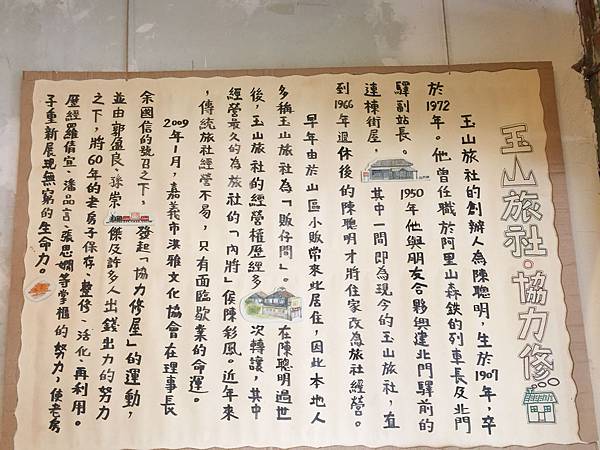 玉山旅社・協力修…
玉山旅社的創辦人為陳聰明，生於1907年，卒
於1972年。他曾任職於阿里山森鉄的列車長及北門
驛副站長。1950年他與朋友合夥興建北門驛前的
連棟街屋，其中一間即為現今的玉山旅社，直
到1966年退休後的陳聰明才將住家改為旅社經營。
早年由於山區小販常來此居住，因此本地人
多稱玉山旅社為「販仔間」。在陳聰明過世
後，玉山旅社的經營權歷經多次轉讓，其中
經營最久的為旅社的「內將」侯陳彩鳳。近年來
，傳統旅社經營不易，只有面臨歇業的命運。
2009年1月，嘉義市洪雅文化協會在理事長
余國信的號召之下，發起「協力修屋」的運動，
並由郭盈良、孫崇傑及許多人出錢出力的努力
之下，將60年的老房子保存、整修、活化、再利用。
歷經羅倩宜、潘品言、張思嫻等掌櫃的努力，使老房
子重新展現無窮的生命力。